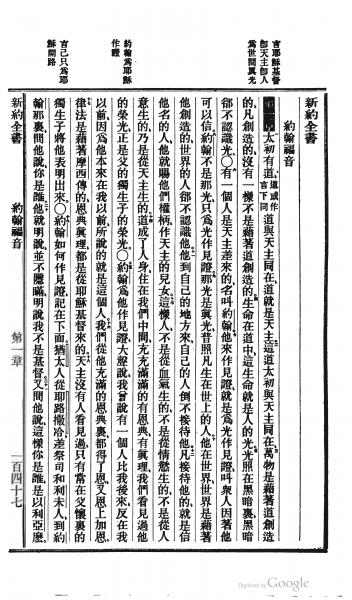 新約全書
約翰福音
言耶穌基督
卽天主卽人
爲世間眞光
第一章太初有道道或作言下同道與天主同在道就是天主這道太初與天主同在萬物是藉著道創造
的凡創造的沒有一樣不是藉著道創造的生命在道中這生命就是人的光光照在黑暗裏黑暗
卻不認識光〇有一個人是天主差來的名叫約翰他來作見證就是爲光作見證叫衆人因著他
可以信約翰不是那光只爲光作見證那光是眞光普照凡生在世上的人他在世界世界是藉著
他創造的世界的人卻不認識他他到自己的地方來自己的人倒不接待他凡接待他的就是信
他名的人他就賜他們權柄作天主的兒女這樣人不是從血氣生的不是從情慾生的不是從人
意生的乃是從天主生的道成了人身住在我們中間充充滿滿的有恩典有眞理我們看見過他
的榮光正是父的獨生子的榮光〇約翰爲他作見證大聲說我曾說有一個人比我後來反在我
以前因爲他本來在我以前所說的就是這個人我們從他充滿的恩典裏都得了恩又恩上加恩
律法是藉著摩西傳的恩典眞理都是從耶穌基督來的天主沒有人看見過只有常在父懷裏的
獨生子將他表明出來〇約翰如何作見證記在下面猶太人從耶路撒冷差祭司和利未人到約
翰那裏問他說你是誰他就明說並不隱瞞明說我不是基督又問他說這樣你是誰是以利亞麽
約翰爲耶穌
作證
言己只爲耶
穌開路
新約全書
約翰福音
第一章
一百四十七
Digitized by Google